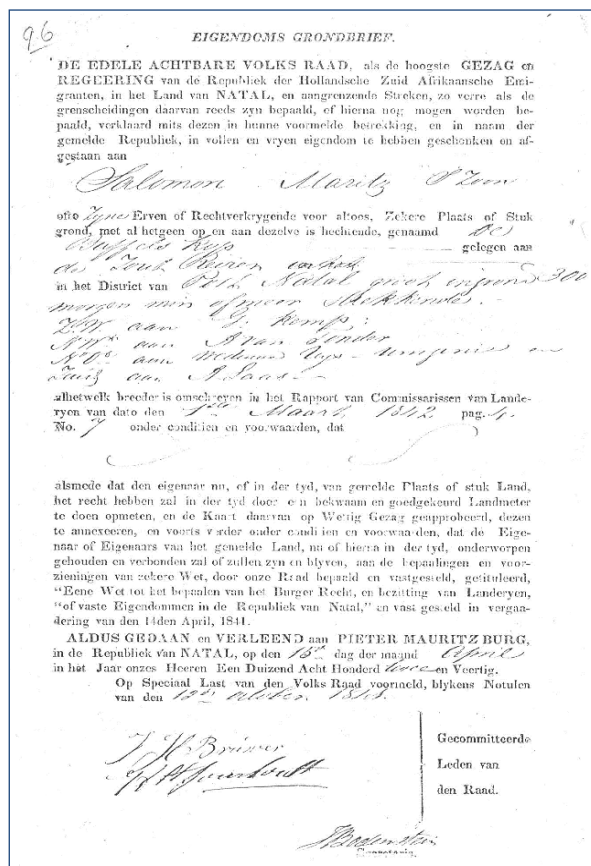 96
EIGENDOMS GRONDBRIEF.
DE EDELE ACHTBARE VOLKS RAAD, als de hoogste GEZAG en
REGEERING van de Republiek der Hollandsche Zuid Afrikaansche Emi-
granten, in het Land van NATAL, en aangrenzende Streken, zo verre als de
grenscheidingen daarvan reeds zyn bepaald, of hierna nog mogen worden be-
paald, verklaard mits dezen in hunne voormelde betrekking, en in naam der
gemelde Republiek, in vollen en vryen eigendom te hebben geschenken en af-
gestaan aan
Salomon Maritz P Zoon
ofte Zyne Erven of Rechtverkrygende voor altoos, Zekere Plaats of Stuk
grond, met al hetgeen op en aan dezelve is hechtende, genaamd De
Buffels Kop gelegen aan
de Zout Revier
in het District van Port Natal groot in grond 300
morgen min of meer
Z.W. aan J Kemp
N.W. aan A van Tonder
aan en
Zuid aan
alhetwelk breeder is omschreven in het Rapport van Commissarissen van Lande-
ryen van dato den 1ste Maart 1842 pag. 4.
No. 7 onder conditien en voorwaarden, dat
alsmede dat den eigenaar nu, of in der tyd, van gemelde Plaats of stuk Land,
het recht hebben zal in der tyd door een bekwaam en goedgekeurd Landmeter
te doen opmeten, en de Kaart daarvan op Wettig Gezag geapprobeerd, dezen
te annexeeren, en voorts verder onder conditien en voorwaarden, dat de Eige-
naar of Eigenaars van het gemelde Land, nu of hierna in der tyd, onderworpen
gehouden en verbonden zal of zullen zyn en blyven, aan de bepaalingen en voor-
zieningen van zekere Wet, door onze Raad bepaald en vastgesteld, getituleerd,
"Eene Wet tot het bepaalen van het Burger Recht, en bezitting van Landeryen,
"of vaste Eigendommen in de Republiek van Natal," en vast gesteld in vergaa-
dering van den 14den April, 1841.
ALDUS GEDAAN en VERLEEND aan PIETER MAURITZ BURG,
in de Republiek van NATAL, op den 15de dag der maand April
in het Jaar onzes Heeren Een Duizend Acht Honderd twee en Veertig.
Op Speciaal Last van den Volks Raad voormeld, blykens Notulen
van den October
Gecommitteerde
Leden van
den Raad.
J Bodenstein